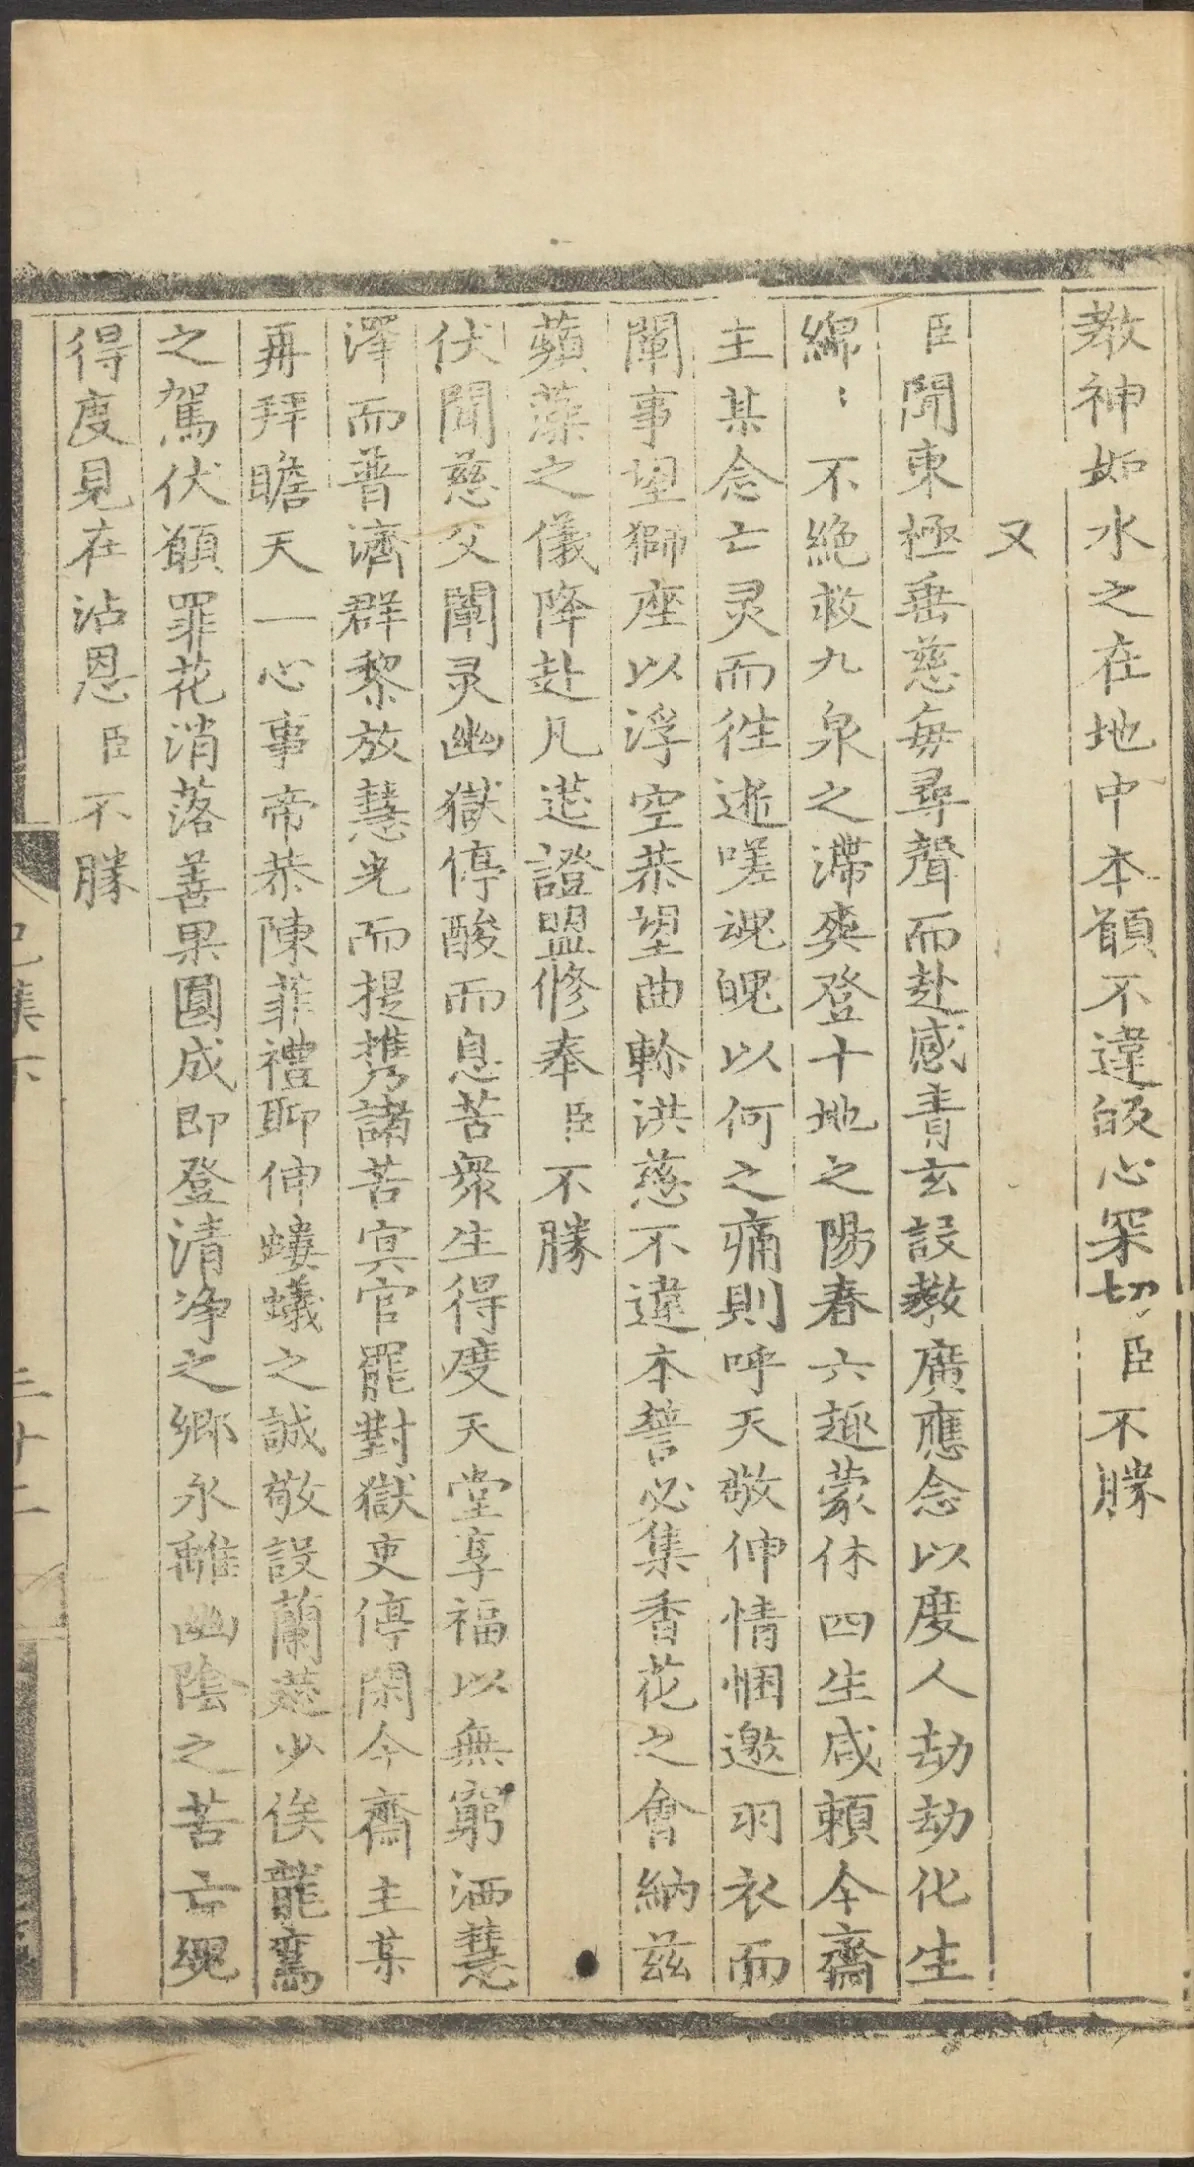 教神如水之在地中本願不違皈心罙切臣不勝
又
臣聞東極垂慈每尋聲而赴感青玄設教廣應念以度人劫劫化生
綿〻不絶救九泉之滯爽登十地之陽春六趣蒙休四生咸頼今齋
主某念亡灵而徃逝嗟魂魄以何之痛則呼天敬伸情悃邀羽衣而
闡事望獅座以浮空恭望曲軫洪慈不違本誓必集香花之會納兹
蘋藻之儀降赴凡筵證盟修奉臣不勝
伏聞慈父闡灵幽獄停酸而息苦衆生得度天堂享福以無窮洒慧
澤而普濟群黎放慧光而提携諸苦冥官罷對獄吏停閑今齋主某
再拜瞻天一心事帝恭陳菲禮聊伸螻蟻之誠敬設蘭筵少俟龍鸞
之駕伏願罪花消落善果圓成即登清净之鄉永離幽陰之苦亡䰟
得度見在沾恩臣不勝
集下
三十二